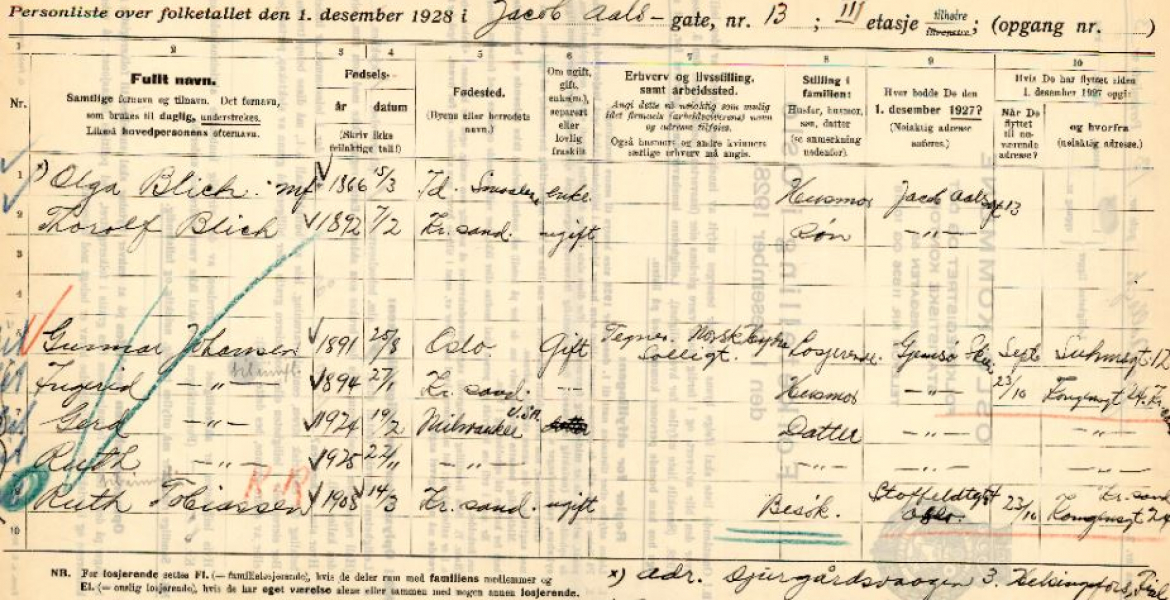 Personliste over folketallet den 1. desember 1928 i Jacob Aals - gate, nr. 13 ; III etasje tilhøire tilvenstre ; (opgang nr. )
1 2 3 4 5 6 7 8 9 10
Nr.
Fullt navn.
Samtlige fornavn og tilnavn. Det fornavn,
som brukes til daglig, understrekes.
Likeså hovedpersonens efternavn.
Fødsels-
år datum
(Skriv ikke
feilaktige tall!)
Fødested.
(Byens eller herredets
navn.)
Om ugift,
gift,
enke(m.),
separert
eller
lovlig
fraskilt
Erhverv og livsstilling.
samt arbeidssted.
Angi dette så nøiaktig som mulig
Også husmors og andre kvinners
særlige erhverv må angis.
Stilling i
familien:
Husfar, husmor,
søn, datter
(se anmerkning
nedenfor).
Hvor bodde De den
1. desember 1927?
(Nøiaktig adresse
anføres.)
Hvis De har flyttet siden
1. desember 1927 opgi:
Når De
flyttet
til nu-
værende
adresse?
og hvorfra
(nøiaktig adresse.)
1 x) Olga Blich 1866 15/3 enke Husmor Jacob Aalsgt 13
2 Thorolf Blich 1892 7/2 Kr. sand. ugift Søn -"-
3
4
5 Gunnar Johansen 1891 25/8 Oslo. Gift Tegner. Norsk Losjerende Sept Suhmsgt. 12
Ingerid -"- 1894 27/1 Kr. sand. -"- Husmor -"- 23/10 Kongensgt 24.
7 Gerd -"- 1924 19/2 Milwaukee U.S.A. Datter -"- -"-
Ruth -"- 1925 22/11 -"- -"- -"- -"-
Ruth Tobiassen R.R 1908 14/3 Kr. sand. ugift Besøk. Oslo. 23/10 Kr. sand Kongensgt 24
10
NB. For losjerende settes Fl. (= familielosjerende), hvis de deler rum med familiens medlemmer og
El. (= enslig losjerende), hvis de har eget værelse alene eller sammen med nogen annen losjerende.
x) adr. Djurgårdsvägen 3. Helsingfors,